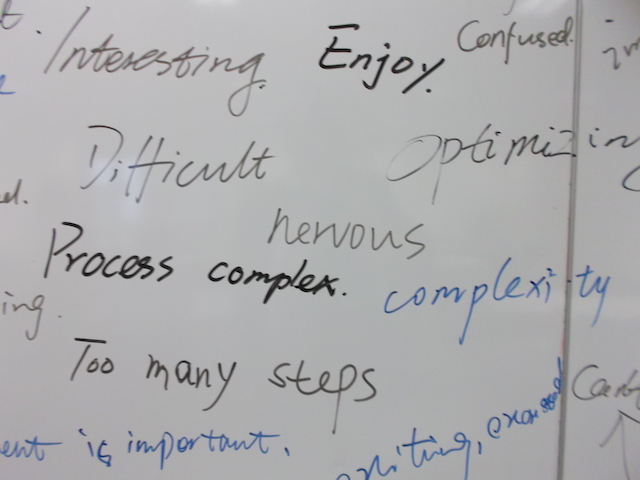 Interesting. Enjoy. Confused.
Difficult Optimizin
nervous
Process complex. complexity
ing.
Too many steps
ent is important.